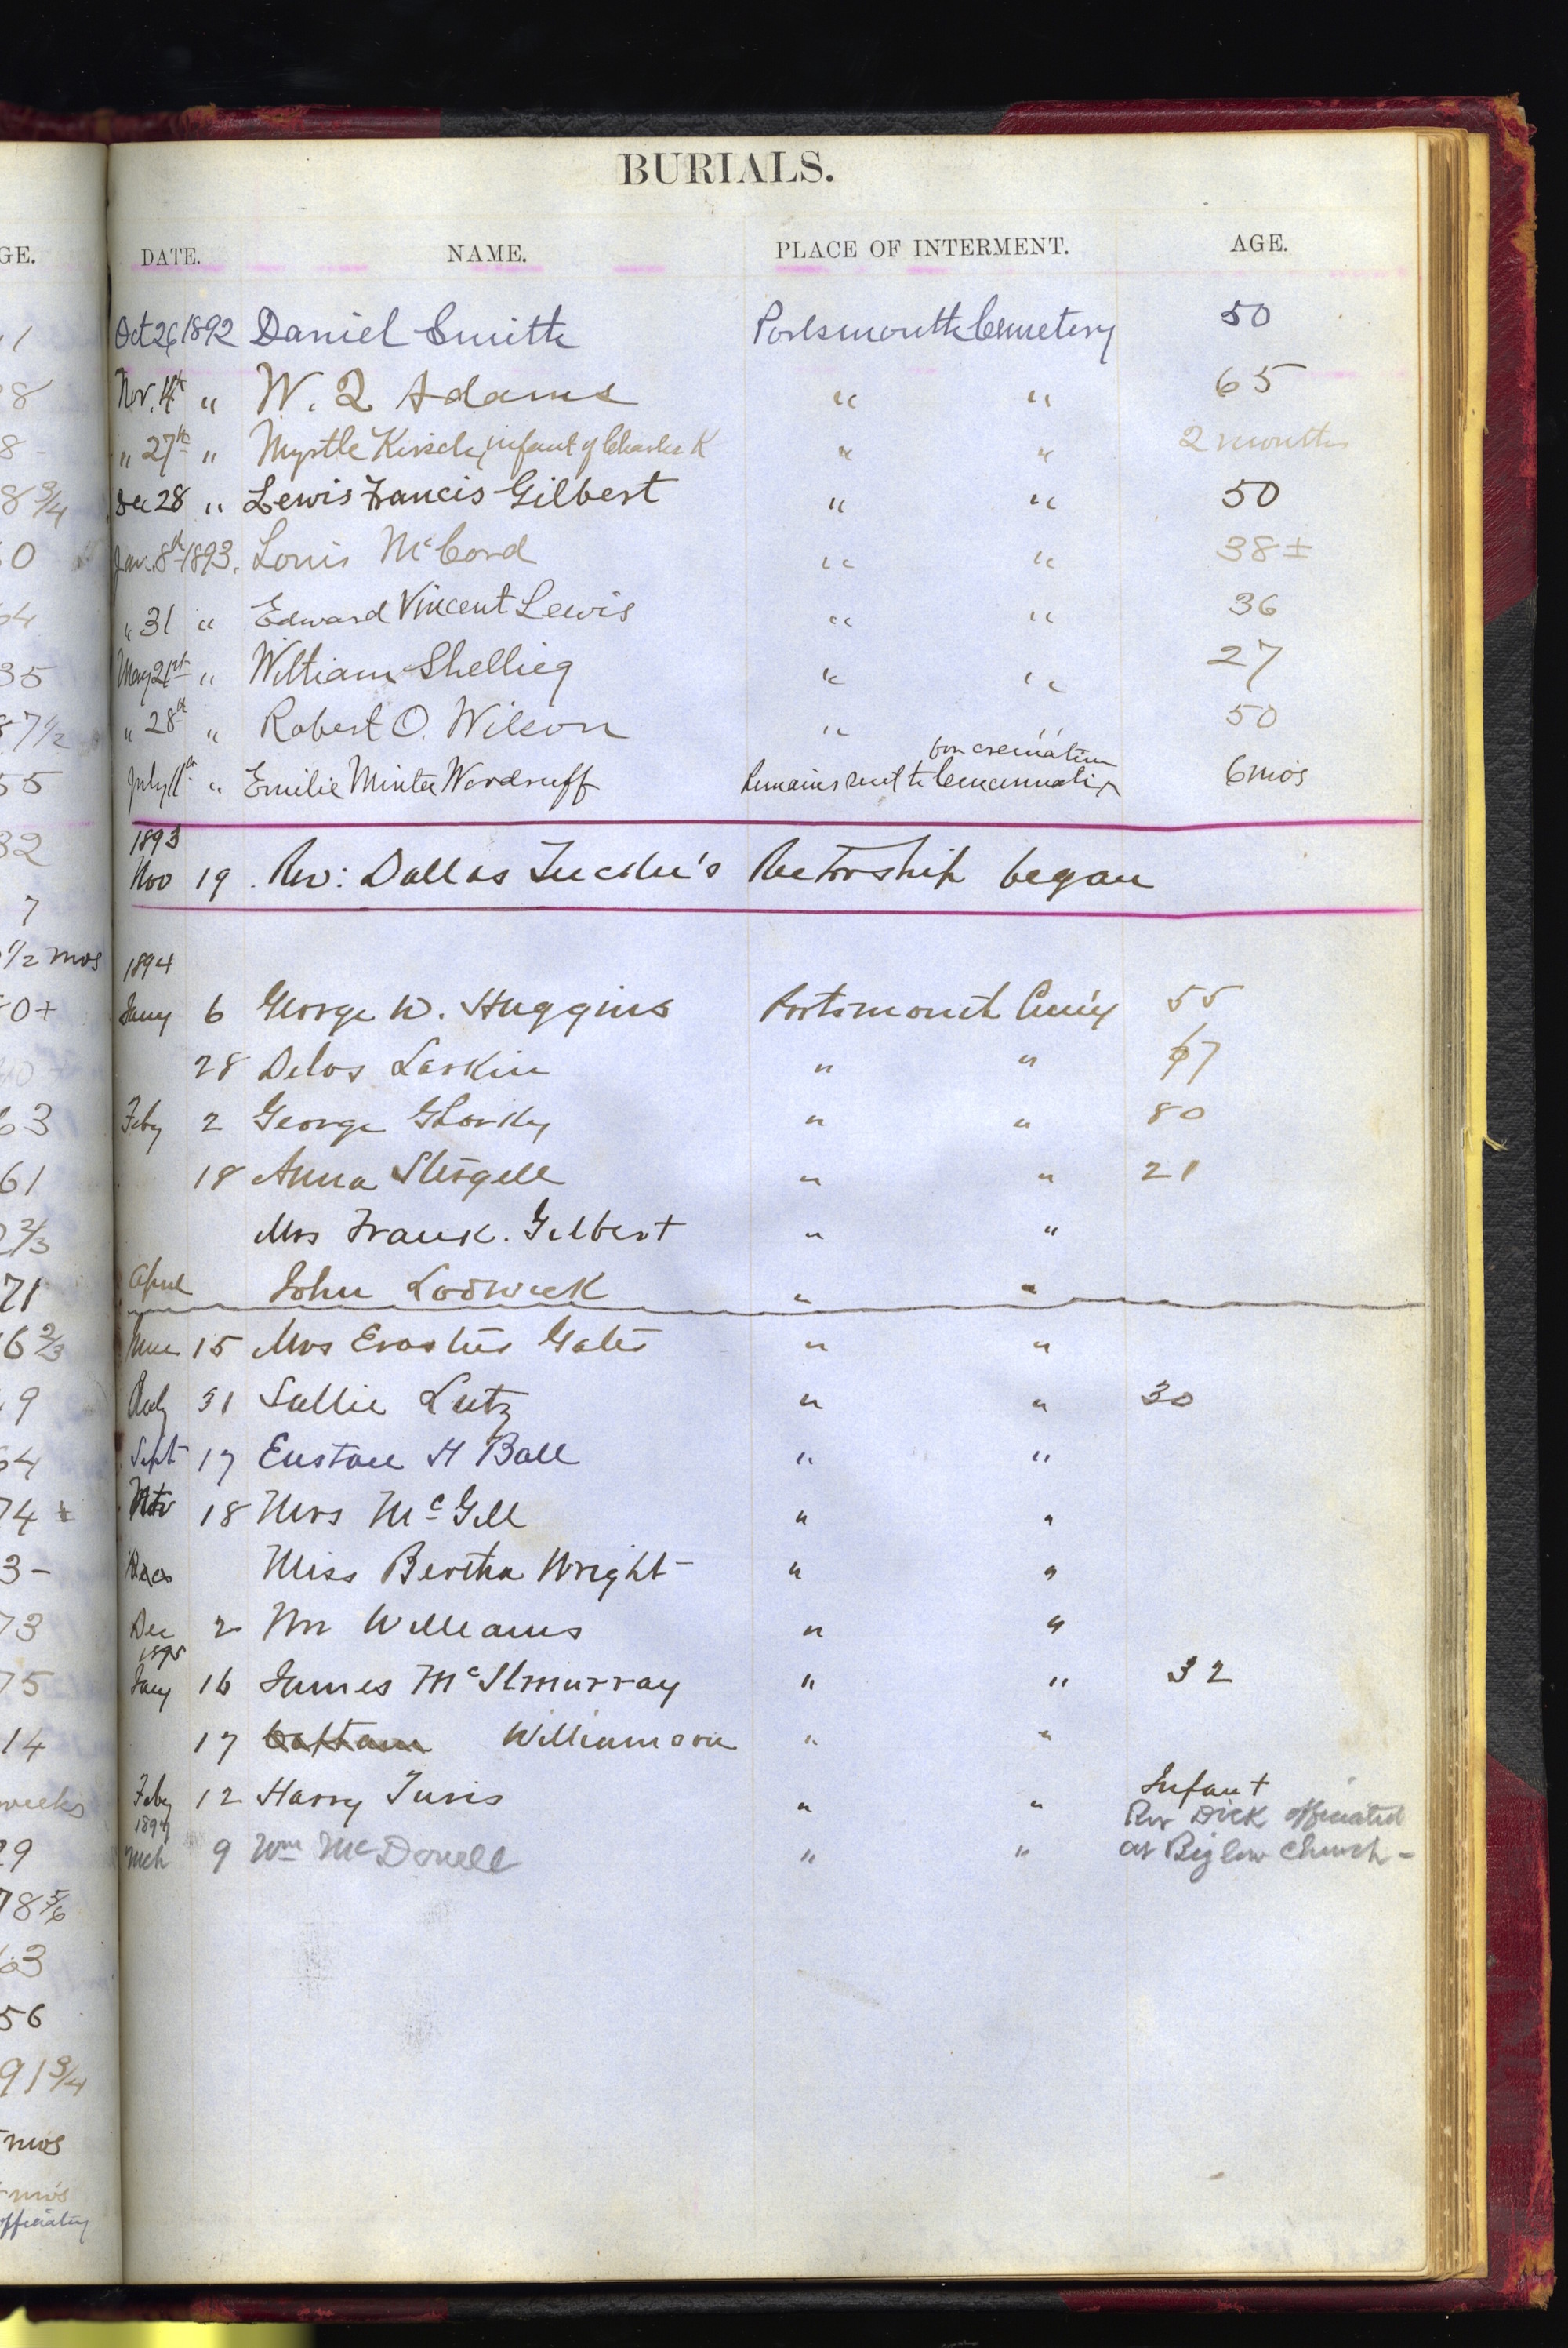 BURIALS.
DATE. NAME. PLACE OF INTERMENT. AGE.
Oct 26 1892 Daniel Smith Portsmouth Cemetery 50
Nov. 4th " W. Q Adams " " 65
" 27th " Myrtle Kirsch, infant of Charles K " " 2 months
Dec 28 " Lewis Francis Gilbert " " 50
Jan. 8th 1893. Louis McCord " " 38 ±
" 31 " Edward Vincent Lewis " " 36
May 21st " William Shellieg " " 27
" 28th " Robert O. Wilson " " 50
for cremation
July 11th " Emilie Minter Woodruff Remains sent to Cincinnati 6 mos
1893
Nov 19. Rev: Dallas Tucker's Rectorship began
1894
Jany 6 George W. Huggins Portsmouth Cem'y 55
28 Delos Larkin " " 67
Feby 2 George " " 80
18 Anna " " 21
Mrs Frank. Gilbert " "
April John Lodwick " "
15 Mrs Erastus Gates " "
31 Sallie Lutz " " 30
Sept 17 Eustace H Ball " "
Nov 18 Mrs McGill " "
Miss Bertha Wright " "
Dec 2 Mr Williams " "
1895
Jany 16 James McIlmurray " " 32
17 Captain Williamson " "
Feby 12 Harry Turis " " Infant
1894
Mch 9 Wm McDonell " " Rev Dick officiated
at Biglow Church -
GE.
8
8 -
8 3/4
0
64
35
87 1/2
55
32
7
1/2 mos
0+
63
61
2/3
71
16 2/3
9
64
74 ±
3 -
73
75
14
weeks
29
78 5/6
63
56
91 3/4
mos
mos
officiating